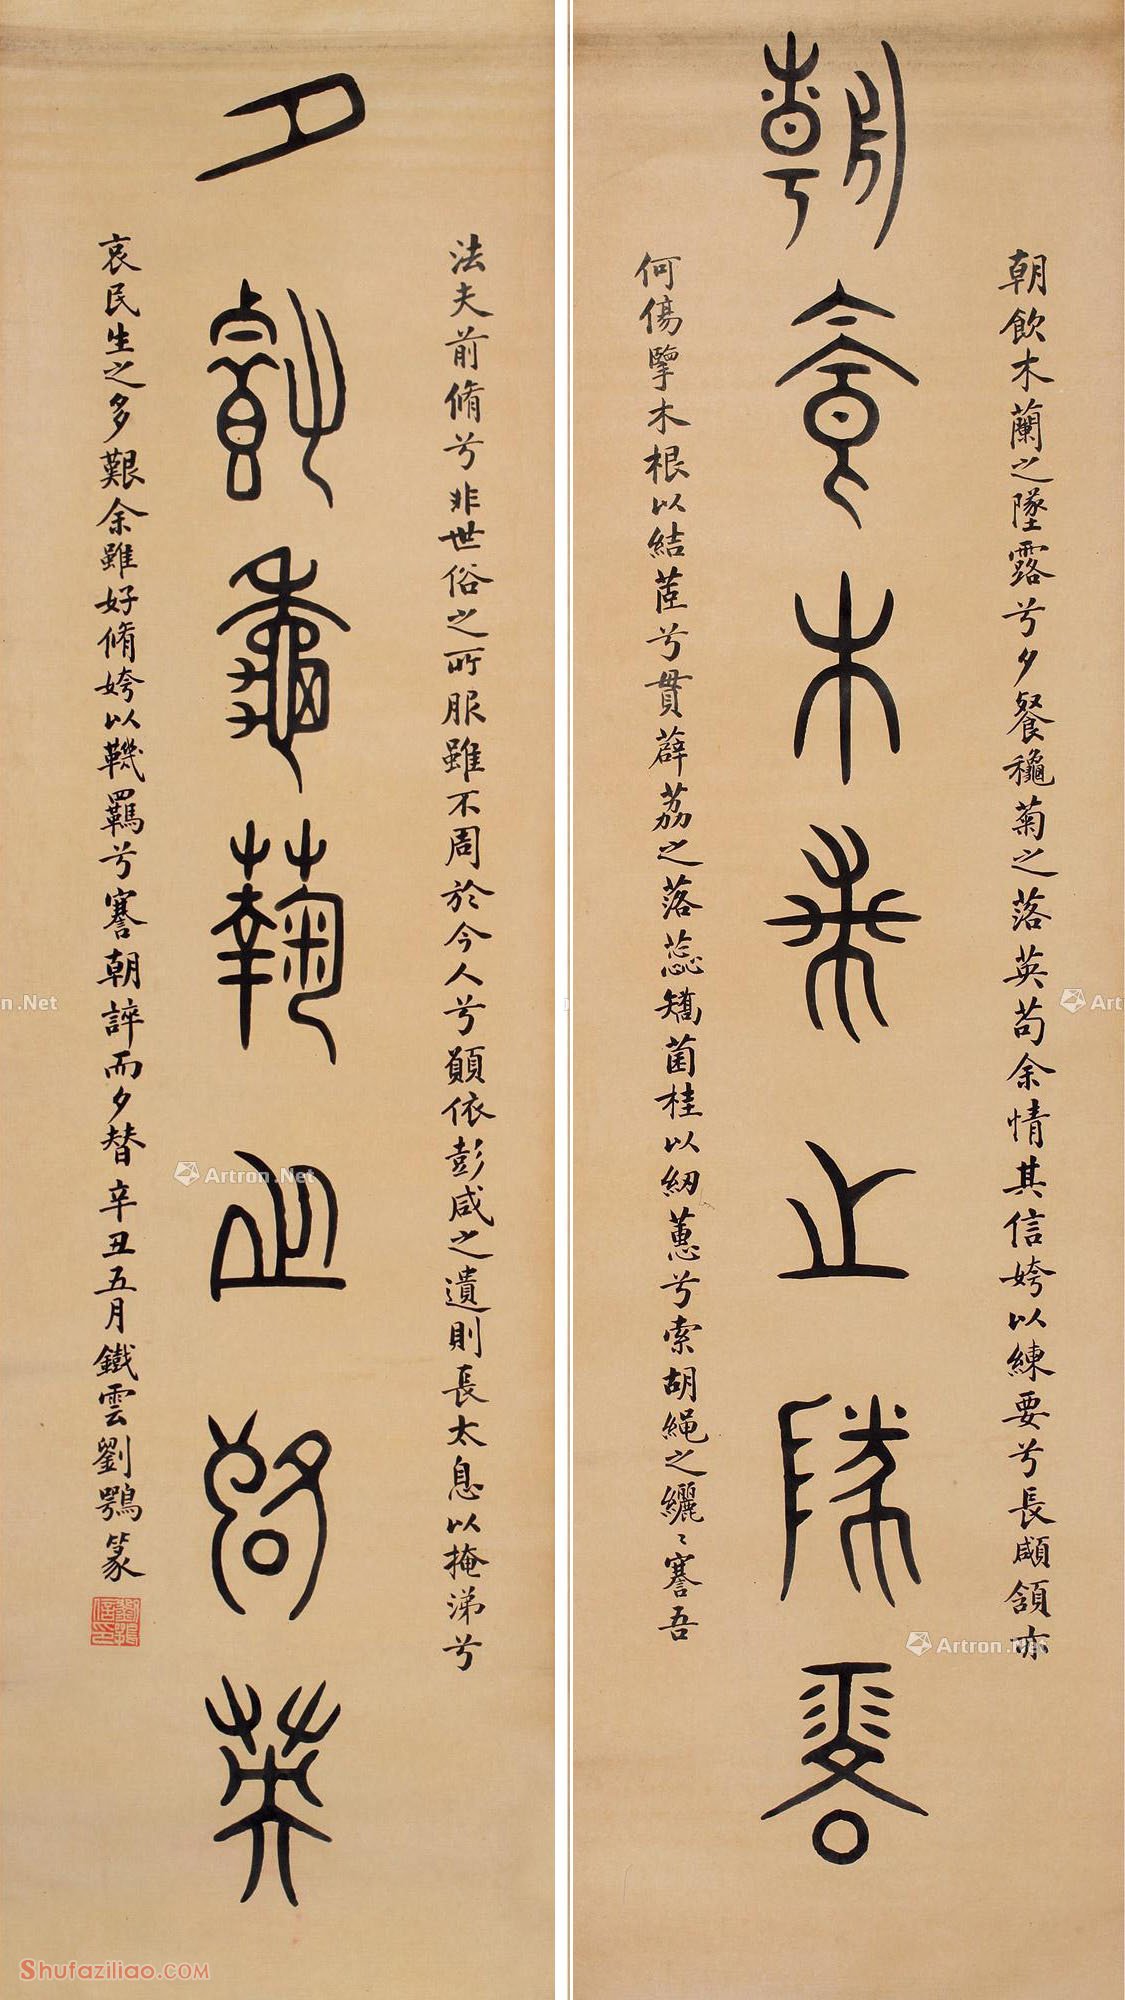 朝飲木蘭之墜露
朝飲木蘭之墜露兮夕餐穐菊之落英苟余情其信姱以練要兮長顑頷亦
何傷擥木根以結茝兮貫薜荔之落蕊矯菌桂以紉蕙兮索胡繩之纚〻謇吾
夕餐龝菊之落英
法夫前脩兮非世俗之所服雖不周於今人兮願依彭咸之遺則長太息以掩涕兮
哀民生之多艱余雖好脩姱以鞿羈兮謇朝誶而夕替辛丑五月鐵雲劉鶚篆
劉鶚信印
Artron.Net
Artron.Net
Artron.Net
Shufaziliao.COM